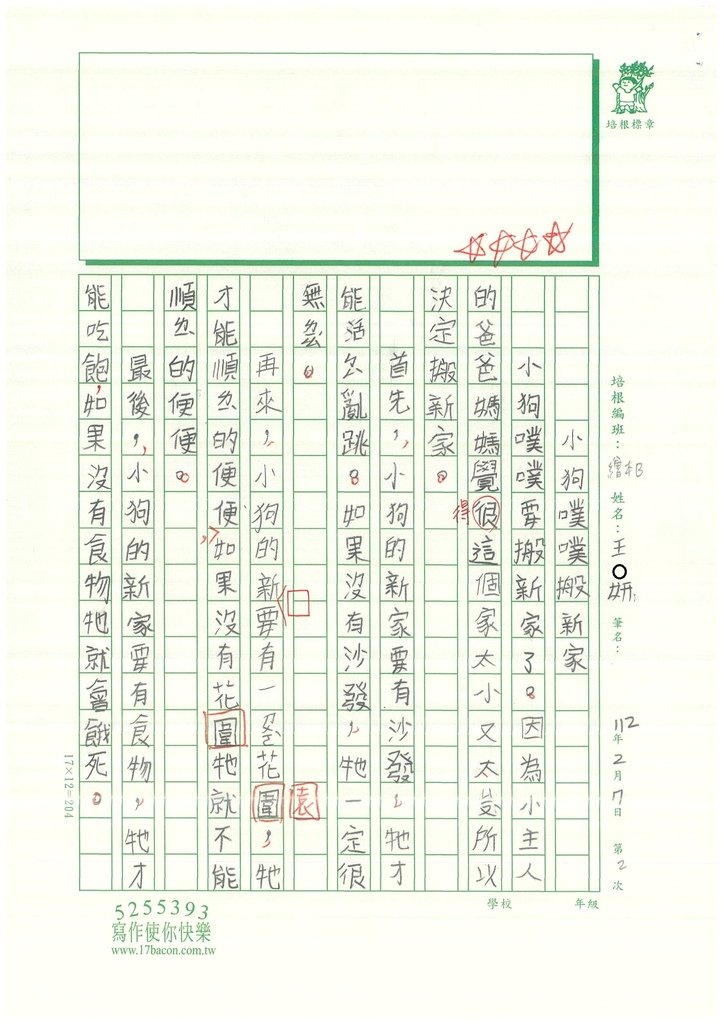 培根標章
培根編班：繪本B 姓名：王 妍 筆名： 112年2月7日 第2次
小狗噗噗搬新家
小狗噗噗要搬新家了。因為小主人
的爸爸媽媽覺很這個家太小又太 所以
得
決定搬新家。
首先，小狗的新家要有沙發，牠才
能活 亂跳。如果沒有沙發，牠一定很
無 。
園
再來，小狗的新要有一 花圍，牠
才能順 的便便，如果沒有花圍牠就不能
順 的便便。
最後，小狗的新家要有食物，牠才
能吃飽，如果沒有食物牠就會餓死。
17×12=204
學校 年級
5255393
寫作使你快樂
www.17bacon.com.tw